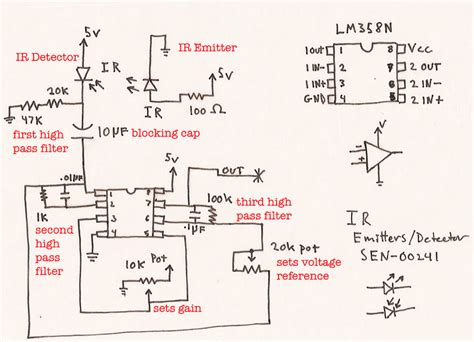 5v
IR Detector
IR Emitter
5v
IR
IR
100 Ω
20K
47K
first high
pass filter
10µF
blocking cap
.01µF
1K
second
high
pass
filter
1
2
3
4
8
7
6
5
5v
OUT
100k
.1µF
third high
pass filter
10k Pot
sets gain
20k pot
sets voltage
reference
LM358N
1out
1 IN-
1 IN+
GND
1
2
3
4
8
7
6
5
Vcc
2 OUT
2 IN-
2 IN+
IR
Emitters/Detector
SEN-00241